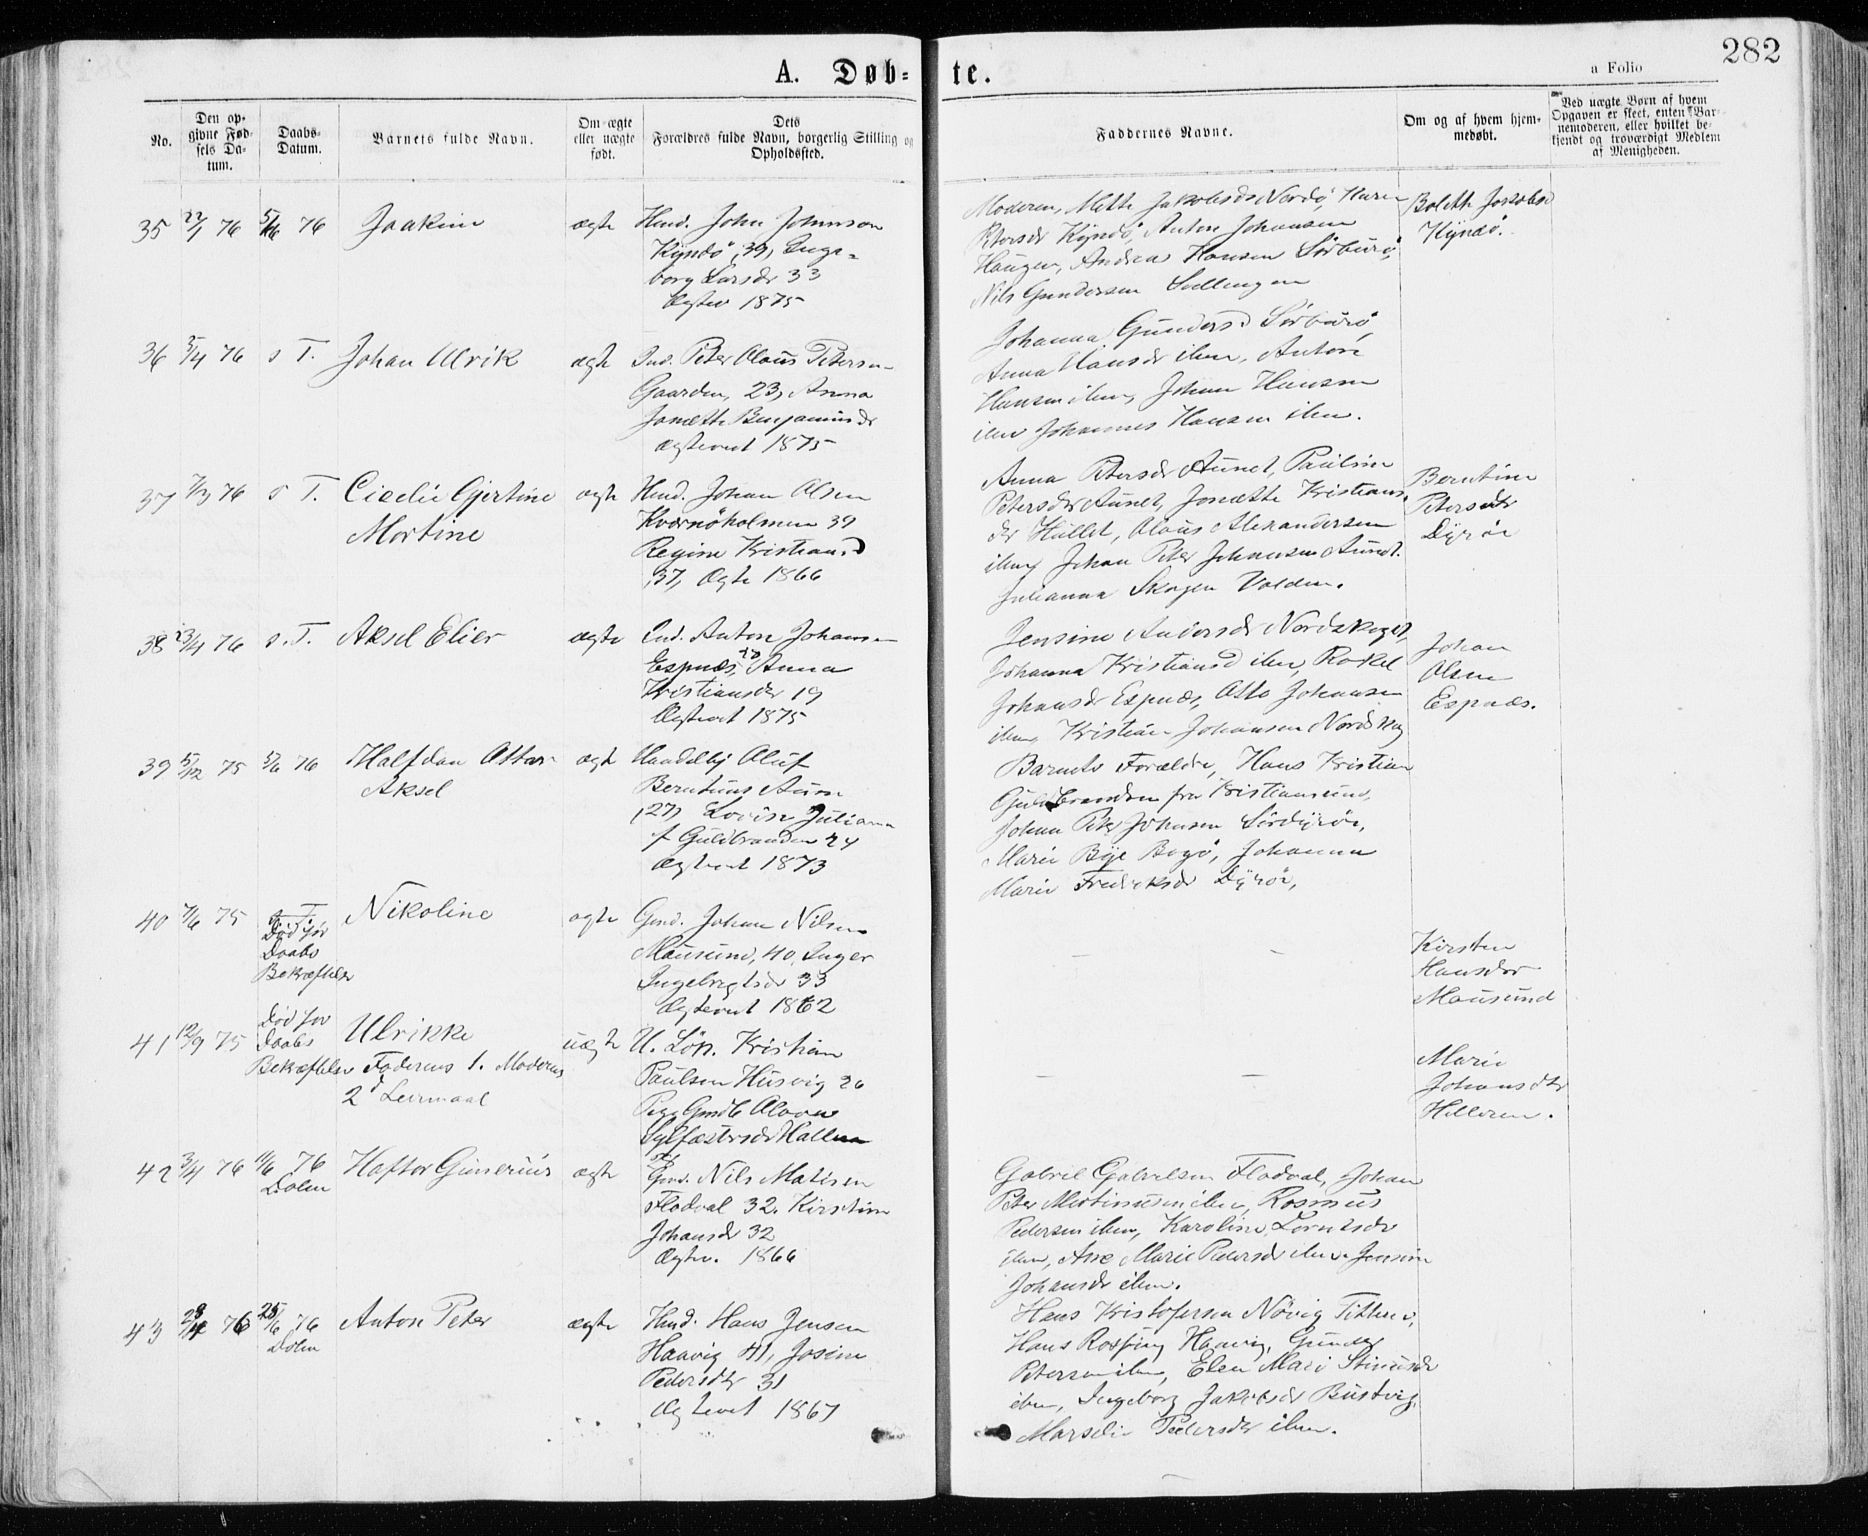 282
A. Døb-
te.
a Folio
No.
Den op-
givne Fød-
sels Da-
tum.
Daabs-
Datum.
Barnets fulde Navn.
Om ægte
eller uægte
født.
Dets
Forældres fulde Navn, borgerlig Stilling og
Opholdssted.
Faddernes Navne.
Om og af hvem hjem-
medøbt.
Ved uægte Børn af hvem
Opgaven er skeet, enten Bar-
nemoderen, eller hvilket be-
kjendt og troværdigt Medlem
af Menigheden.
35 22/1 76 5/6 76 Joakim ægte
John Johnson
Kyndø, 39, Inge-
borg Larsdr 33
Ægtev 1875
Moderen, Mette Jakobsdr Nordø, Karen
Petersdr Kyndø, Anton Johansen
Haugen, Andrea Hansen Sørburø,
Nils Gundersen
Boleth Jakobsd
Kyndø.
36 5/4 76 s T. Johan Ulrik ægte
Ind. Peter Olaus Petersen
Gaarden, 23, Anna
Jonette Benjaminsdr
Ægteviet 1875
Johanna Gundersd Sørburø,
Anna Hansdr ibm, Anton
Hansen ibm, Johan Hansen
ibm Johannes Hansen ibm.
37 7/3 76 s T. Cicelie Gjertine
Mortine
ægte
Johan Olsen
Kvernøholmen 39
Regine Kristiansd
,37, Ægte 1866
Anna Petersdr Aunet, Pauline
Petersdr Aunet, Jonette Kristians-
dr Hallet, Olaus Alexandersen
ibm, Johan Peter Johansen Aunet.
Julianna Skagen Valden.
Berntine
Petersdtr
Dyrøe
38 23/4 76 s. T. Aksel Elier ægte
Ind. Anton Johansen
Espnæs, Anna
Kristiansdr 19
Ægteviet 1875
Jensine Andersdr Nordskaget,
Johanna Kristiansd ibm, Rakel
Johansdr Espnæs, Otto Johansen
ibm, Kristian Johansen Nordskag
Johan
Olsen
Espnæs.
39 5/12 75 5/6 76 Halfdan Ottar
Aksel
ægte
Handelsbj Oluf
Berntsens Aune
(27) Lovise Juliane
f Guldbrandsen 24
Ægteviet 1873
Barnets Forældre, Hans Kristian
Guldbrandsen fra Kristiansund,
Johan Peter Johnsen Sørdyrøe,
Marie Bøje Bogø, Johanna
Marie Fredriksdr Dyrøe,
40 7/6 75 s. T.
Død før
Daabs
Bekræftelse
Nikoline ægte
Gmd. Johan Nilsen
Mausund, 40, Inger
Ingebrigtsdr 33
Ægteviet 1862
Kirsten
Hansdtr
Mausund
41 12/9 75 Død før
Daabs
Bekræftelse
Ulrikke
Faderens 1. Moderens
2d Leiermaal
uægte
U. Løk. Kristian
Paulsen Husvig 26
Pige Olava
Sylfæstersdr Hallen
Marie
Johansdtr
Helleren.
42 3/4 76 11/6 76
Dolm
Haftor Gunerius ægte
Gmd. Nils Matisen
Fladval 32. Kirstine
Johansdr 32
Ægtev. 1866
Gabriel Gabrielsen Fladval, Johan
Peter Martinusen ibm, Rasmus
Pedersen ibm, Karoline Lorntsdr
ibm, Ane Marie Pedersdr ibm, Jensine
Johansdr ibm.
43 28/4 76 25/6 76
Dolm
Anton Peter ægte
Hans Jensen
Haavig 41, Josine
Pedersdtr 31
Ægteviet 1867
Hans Kristofersen Nøvig Titteren,
Hans Haavig, Gunder
Petersen ibm, Elen Marie
ibm, Ingeborg Jakobsdr Bustvig,
Marselie Pedersdr ibm.